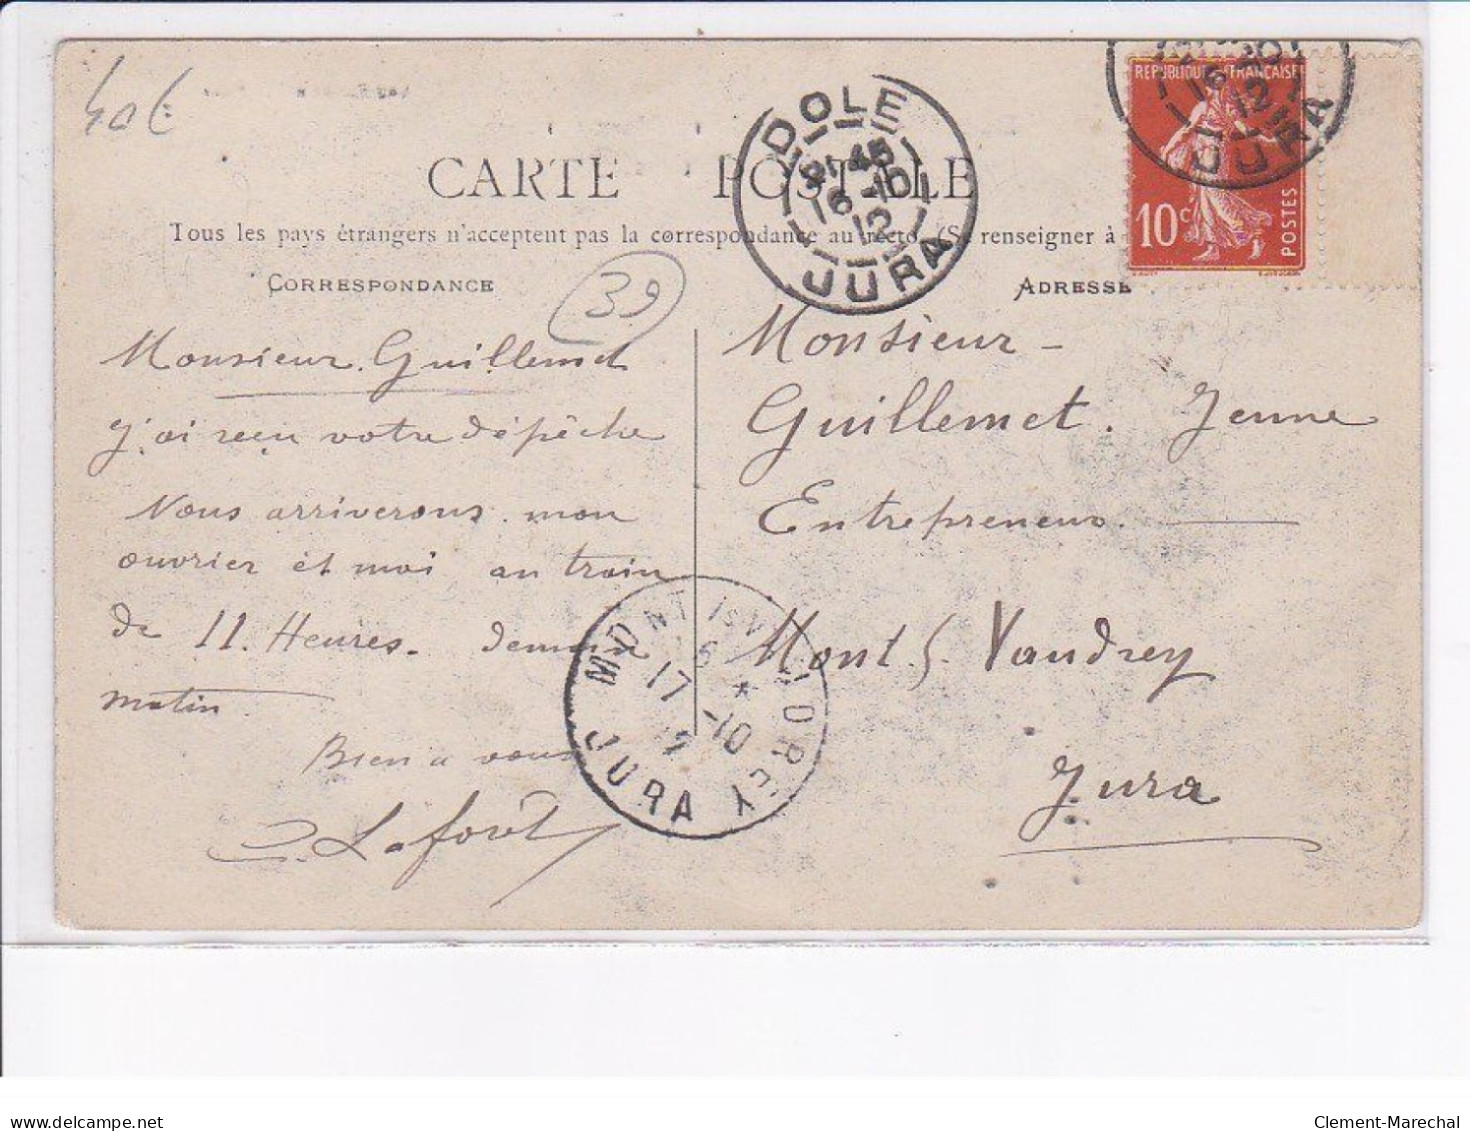 40€
CARTE POSTALE
Tous les pays étrangers n'acceptent pas la correspondance au recto. (Se renseigner à
CORRESPONDANCE
ADRESSE
39
Monsieur Guillemet
J'ai reçu votre dépêche
Nous arriverons mon
ouvrier et moi au train
de 11 Heures. demain
matin
Bien a vous
Laforêt
Monsieur -
Guillemet. Jeune
Entrepreneur.
Mont S. Vaudrey
Jura
DOLE
21 45
16 -10
12
JURA
REPUBLIQUE FRANÇAISE
10c
POSTES
16
12
JURA
MONT IS VAUDREY
17 -10
12
JURA
delcampe.net
Clement-Marechal